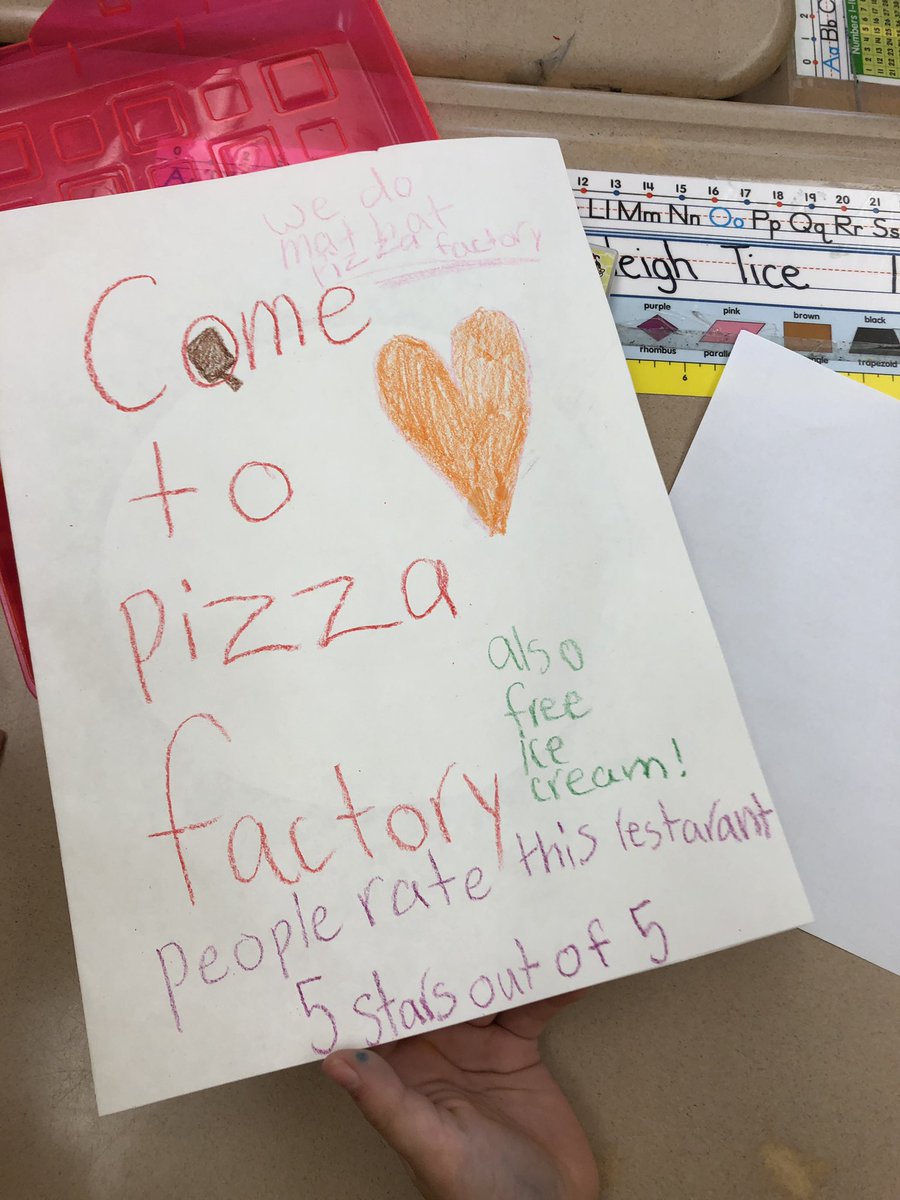 we do
mat bat
pizza factory
Come
to
pizza
factory
also
free
ice
cream!
people rate this restarant
5 stars out of 5
12 13 14 15 16 17 18 19 20 21
Ll Mm Nn Oo Pp Qq Rr Ss
leigh Tice
purple pink brown black
rhombus trapezoid
6
0 1 2
Aa Bb C
Numbers 1-1